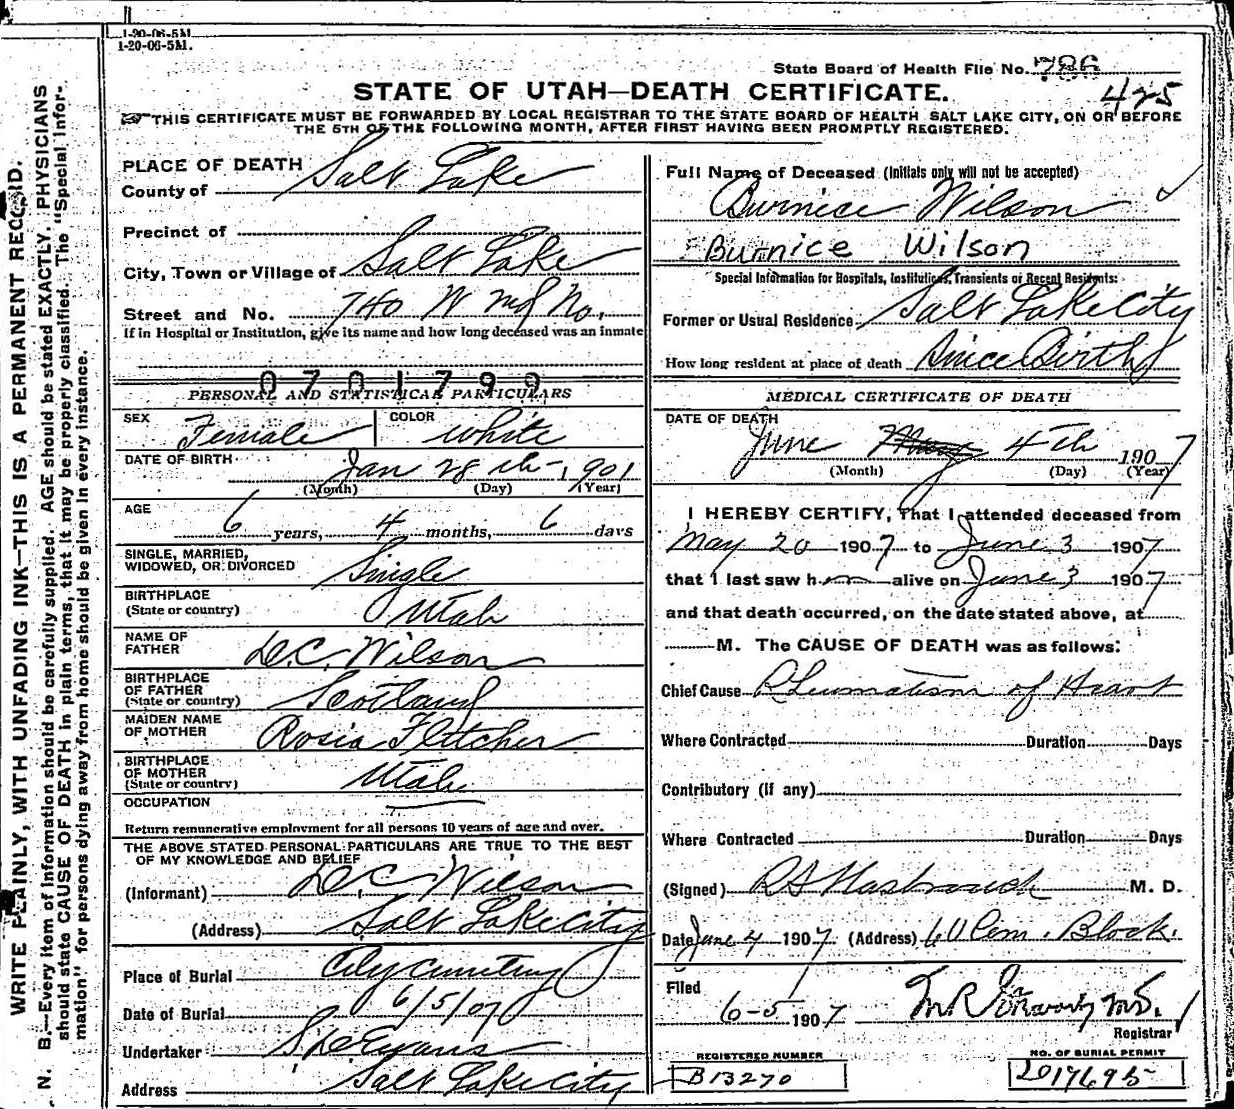 1-20-06-5M.
1-20-06-5M.
State Board of Health File No. 786
425
STATE OF UTAH—DEATH CERTIFICATE.
THIS CERTIFICATE MUST BE FORWARDED BY LOCAL REGISTRAR TO THE STATE BOARD OF HEALTH SALT LAKE CITY, ON OR BEFORE
THE 5TH OF THE FOLLOWING MONTH, AFTER FIRST HAVING BEEN PROMPTLY REGISTERED.
WRITE PLAINLY, WITH UNFADING INK—THIS IS A PERMANENT RECORD.
N. B.—Every item of information should be carefully supplied. AGE should be stated EXACTLY. PHYSICIANS
should state CAUSE OF DEATH in plain terms, that it may be properly classified. The "Special Infor-
mation" for persons dying away from home should be given in every instance.
PLACE OF DEATH
County of Salt Lake
Precinct of
City, Town or Village of Salt Lake
Street and No. 740 W No.
If in Hospital or Institution, give its name and how long deceased was an inmate
0701799
PERSONAL AND STATISTICAL PARTICULARS
SEX Female COLOR White
DATE OF BIRTH Jan 28th 1901
(Month) (Day) (Year)
AGE
6 years, 4 months, 6 days
SINGLE, MARRIED,
WIDOWED, OR DIVORCED Single
BIRTHPLACE
(State or country) Utah
NAME OF
FATHER D.C. Wilson
BIRTHPLACE
OF FATHER
(State or country) Scotland
MAIDEN NAME
OF MOTHER Rosia Fletcher
BIRTHPLACE
OF MOTHER
(State or country) Utah
OCCUPATION
Return remunerative employment for all persons 10 years of age and over.
THE ABOVE STATED PERSONAL PARTICULARS ARE TRUE TO THE BEST
OF MY KNOWLEDGE AND BELIEF
(Informant) D C Wilson
(Address) Salt Lake City
Place of Burial City Cemetery
Date of Burial 6/5/07
Undertaker Evans
Address Salt Lake City
Full Name of Deceased (Initials only will not be accepted)
Burnice Wilson
Burnice Wilson
Special Information for Hospitals, Institutions, Transients or Recent Residents:
Former or Usual Residence Salt Lake City
How long resident at place of death Since Birth
MEDICAL CERTIFICATE OF DEATH
DATE OF DEATH
June May 4th 1907
(Month) (Day) (Year)
I HEREBY CERTIFY, That I attended deceased from
May 20 1907 to June 3 1907
that I last saw her alive on June 3 1907
and that death occurred, on the date stated above, at
M. The CAUSE OF DEATH was as follows:
Chief Cause Rheumatism of Heart
Where Contracted Duration Days
Contributory (if any)
Where Contracted Duration Days
(Signed) Hasbrouck M. D.
Date June 4 1907 (Address) Com. Block.
Filed
6-5 1907
Registrar
REGISTERED NUMBER
B13270
NO. OF BURIAL PERMIT